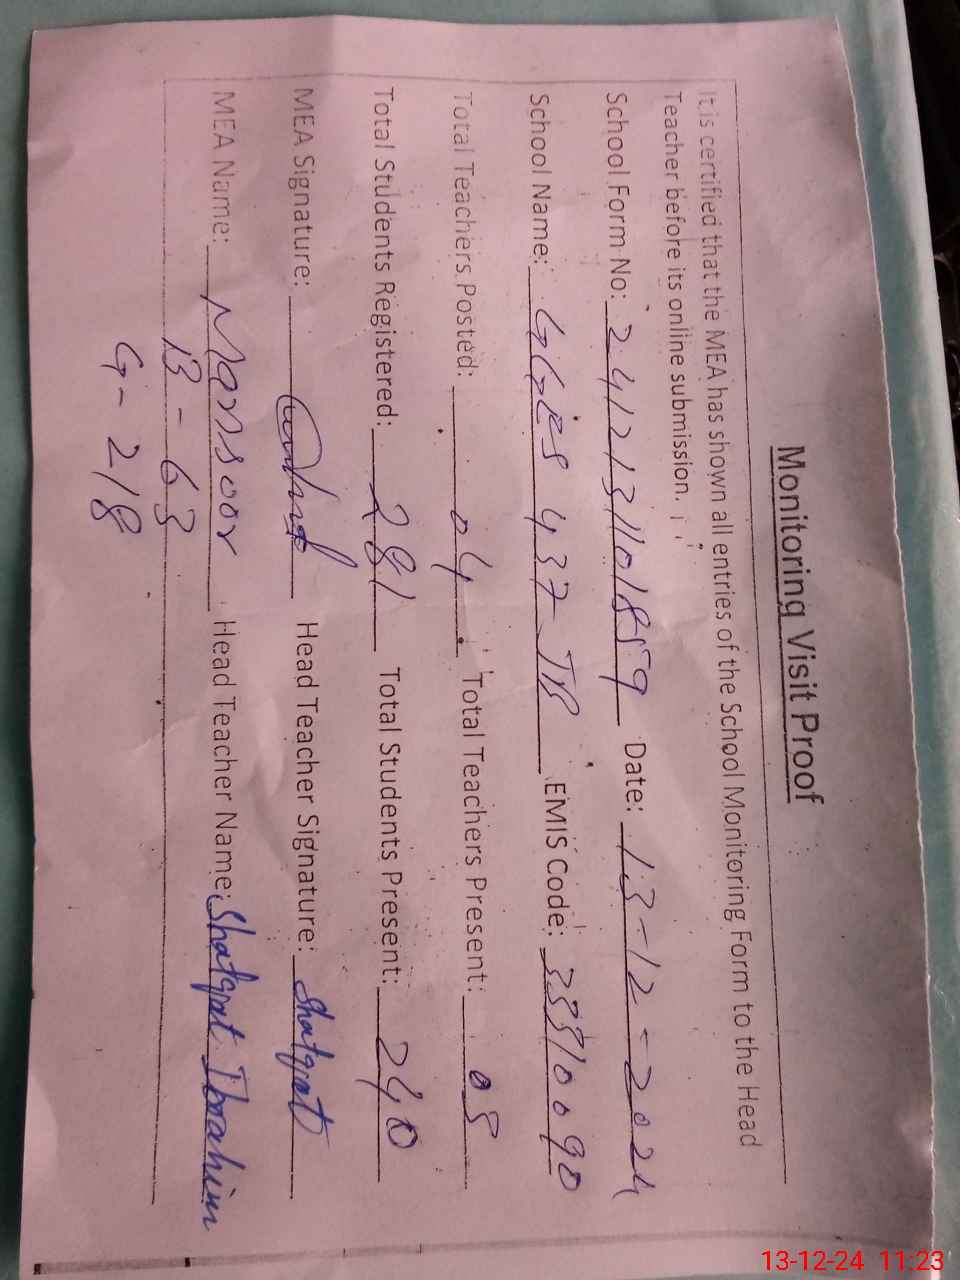 Monitoring Visit Proof
It is certified that the MEA has shown all entries of the School Monitoring Form to the Head
Teacher before its online submission.
School Form No: 2412131101859 Date: 13-12-2024
School Name: GGES 437 JB EMIS Code: 33810090
Total Teachers Posted: 04 Total Teachers Present: 03
Total Students Registered: 281 Total Students Present: 240
MEA Signature: Head Teacher Signature: Shafqat
MEA Name: Mansoor Head Teacher Name: Shafqat Ibrahim
B-63
G-218
13-12-24 11:23